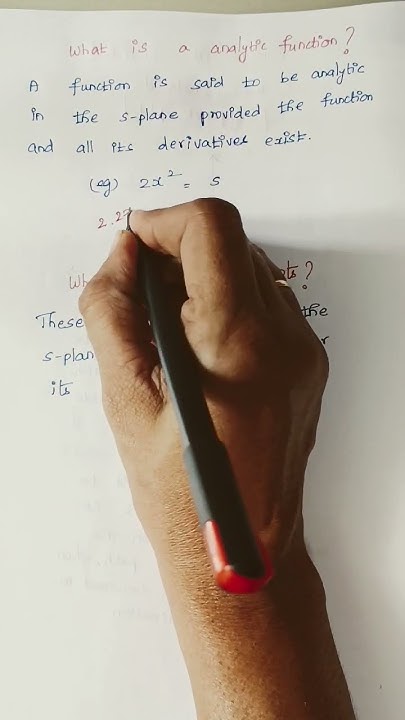 What is a analytic function?
A function is said to be analytic
in the s-plane provided the function
and all its derivatives exist.
(eg) 2x² = s
2.2x
?
These the
s-plan
its